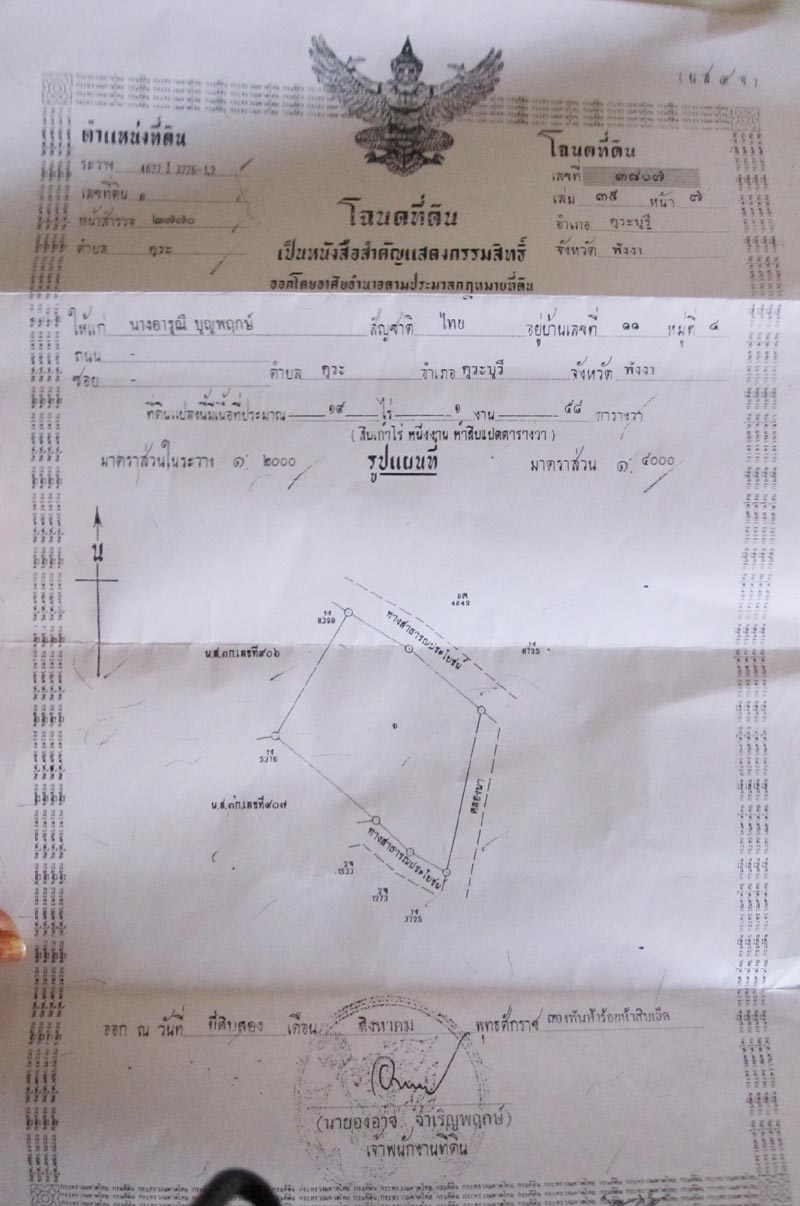 (น.ส.๔ จ)
ตำแหน่งที่ดิน
ระวาง 4627 I 3226-1,2
เลขที่ดิน ๑
หน้าสำรวจ ๒๗๗๐
ตำบล คุระ
โฉนดที่ดิน
เลขที่ ๓๘๐๗
เล่ม ๓๙ หน้า ๗
อำเภอ คุระบุรี
จังหวัด พังงา
โฉนดที่ดิน
เป็นหนังสือสำคัญแสดงกรรมสิทธิ์
ออกโดยอาศัยอำนาจตามประมวลกฎหมายที่ดิน
ให้แก่ นางอารุณี บุญพฤกษ์ สัญชาติ ไทย อยู่บ้านเลขที่ ๑๑ หมู่ที่ ๘
ถนน -
ซอย - ตำบล คุระ อำเภอ คุระบุรี จังหวัด พังงา
ที่ดินแปลงนี้มีเนื้อที่ประมาณ ๑๙ ไร่ ๑ งาน ๕๘ ตารางวา
( สิบเก้าไร่ หนึ่งงาน ห้าสิบแปดตารางวา )
มาตราส่วนในระวาง ๑: ๒๐๐๐ รูปแผนที่ มาตราส่วน ๑: ๔๐๐๐
น
4849
8398
ทางสาธารณประโยชน์
8725
น.ส.๓ก.เลขที่๙๐๖
๑
5376
คลองนา
น.ส.๓ก.เลขที่๙๐๗
ทางสาธารณประโยชน์
1533
1273
3725
ออก ณ วันที่ ที่สิบสอง เดือน สิงหาคม พุทธศักราช สองพันห้าร้อยห้าสิบเอ็ด
(นายองอาจ จำเริญพฤกษ์)
เจ้าพนักงานที่ดิน
กระทรวงมหาดไทย กรมที่ดิน กระทรวงมหาดไทย กรมที่ดิน